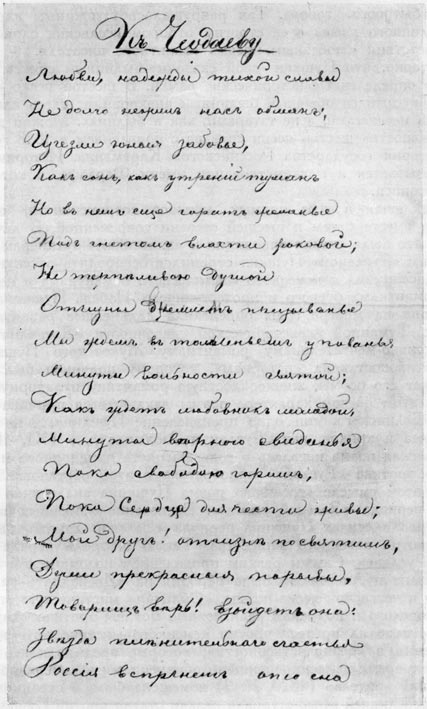 Къ Чеодаеву
Любви, надежды тихой славы
Не долго нежилъ насъ обманъ;
Изчезли юныя забавы,
Какъ сонъ, какъ утреній туманъ
Но въ насъ еще горятъ желанье
Подъ гнетомъ власти роковой;
Не терпѣливою душой
Отчизны внемлемъ призыванье
Мы ждемъ въ томленьемъ упованья
Минуты вольности святой;
Какъ ждетъ любовникъ молодой
Минуты вѣрного свиданья
Пока свабодою горимъ,
Пока Сердца для чести живы;
Мой Другъ! отчизнѣ посвятимъ,
Души прекрасныя порывы,
Товарищъ вѣрь! взойдетъ она:
Звѣзда пленительнаго счастья
Россія вспрянетъ ото сна